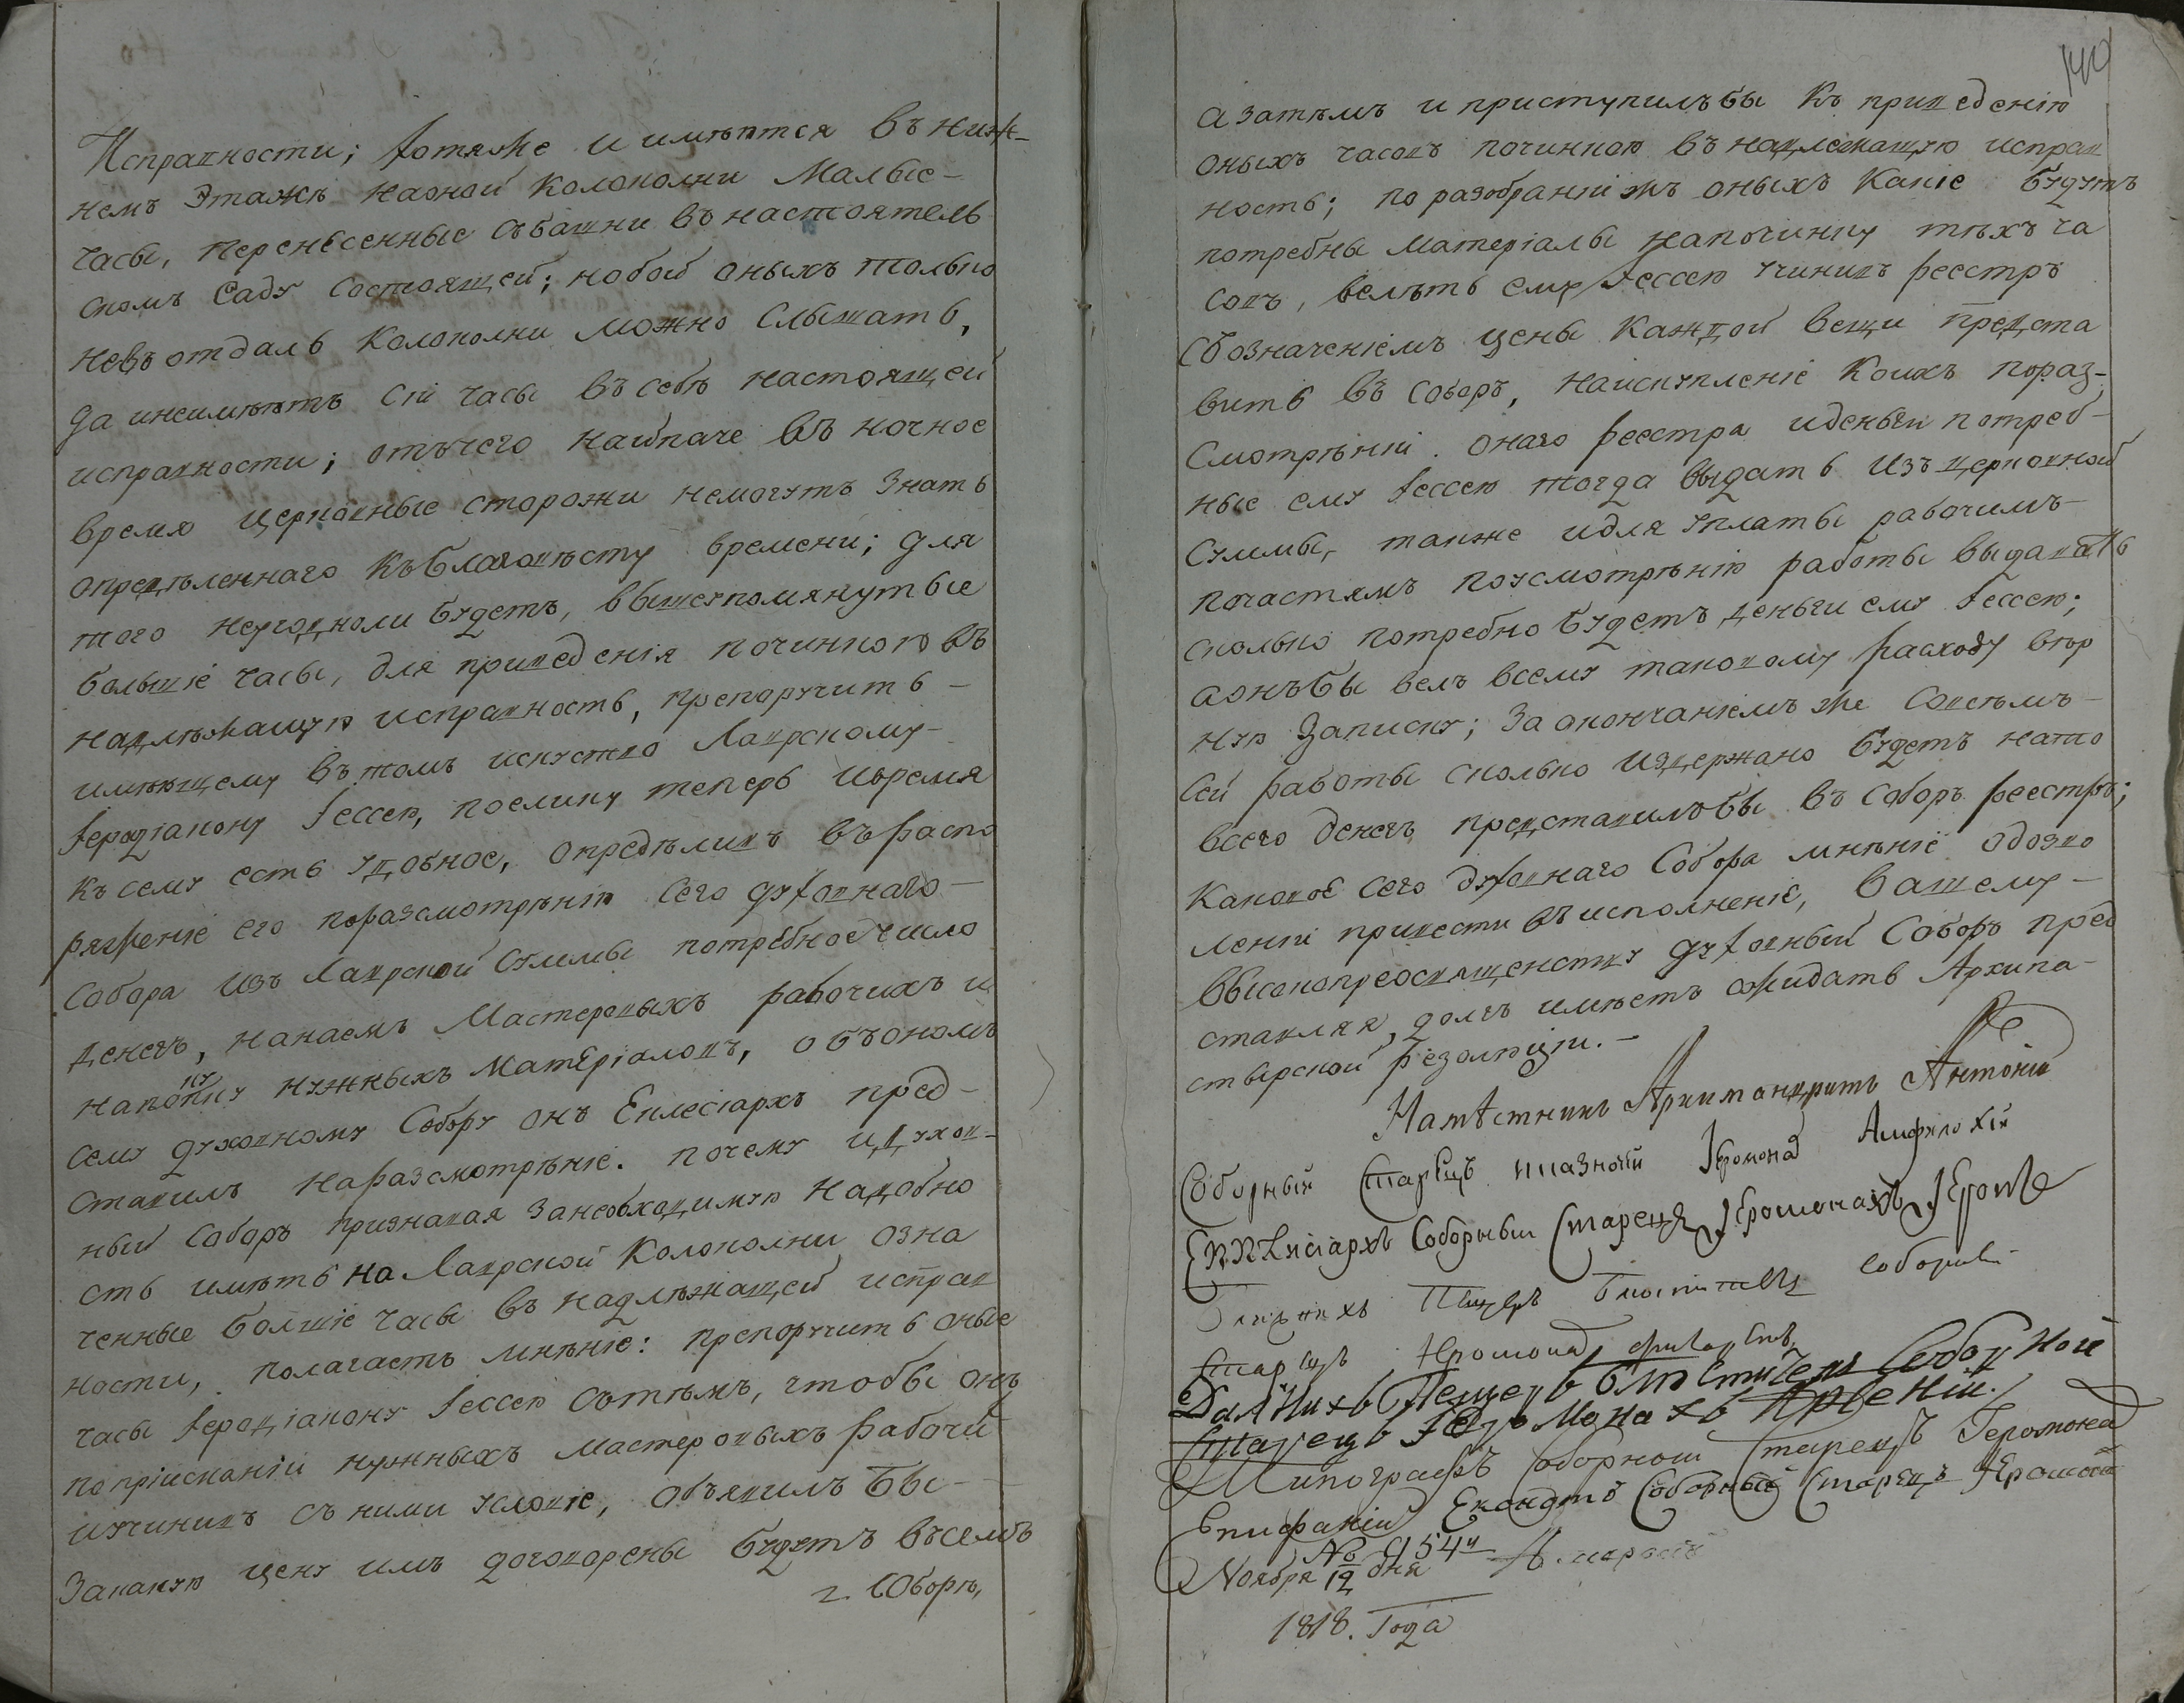 Исправности; хотя же и имѣются въ ниж-
немъ Этажѣ на оной колокольни Малые-
часы, перенесенные съ башни въ настоятель
скомъ Саду состоящей; но бой оныхъ только
невъ отдаль колокольни можно слышать,
да и неимѣютъ сіи часы въ себѣ настоящей
исправности; отъ чего наипаче въ ночное
время церковные сторожи немогутъ знать
опредѣленнаго къ благовѣсту времени; для
того неугодноли будетъ, вышеупомянутые
большіе часы, для приведенія починкою въ
надлѣжащую исправность, препоручить-
имѣющему въ томъ искуство Лаврскому-
Іеродіакону Іессею, поелику теперь и время
къ сему есть удобное, опредѣливъ въ распо
ряженіе его поразсмотрѣнію сего духовнаго-
Собора изъ Лаврской суммы потребное число
денегъ, на наемъ Мастеровыхъ рабочихъ и
на покупку нужныхъ матеріаловъ, объ ономъ
сему духовному Собору онъ Еклесіархъ пред-
ставилъ на разсмотрѣніе. почему и духов-
ный Соборъ признавая за необходимую надобно
сть имѣть на Лаврской колокольни озна
ченные болшіе часы въ надлѣжащей исправ
ности, полагаетъ мнѣніе: препоручить оные
часы Іеродіакону Іессею сътѣмъ, чтобы онъ
по пріисканіи нужныхъ мастеровыхъ рабочи
и учинивъ съ ними условіе, объявилъ бы-
За какую цену имъ договорены будутъ въ семъ
г. Соборѣ,
140
а затѣмъ и приступилъ бы къ приведенію
оныхъ часовъ починкою въ надлежащую исправ
ность; по разобраніи жъ оныхъ какіе будутъ
потребны матеріалы на починку тѣхъ ча
совъ, велѣть ему Іессею учинивъ реестръ
съ означеніемъ цены каждой вещи предста
вить въ соборъ, на искупленіе коихъ по раз-
смотрѣніи онаго реестра и деньги потреб-
ные ему Іессею тогда выдать изъ церковной
суммы, также и для уплаты рабочимъ-
по частямъ по усмотрѣнію работы выдавать
сколько потребно будетъ деньги ему Іессею;
а онъ бы велъ всему таковому расходу вѣр
ную Записку; За окончаніемъ же совсѣмъ-
сей работы сколько издержано будетъ на то
всего денегъ представилъ бы въ Соборъ реестръ;
каковое сего духовнаго Собора мнѣніе о дозво
леніи привести въ исполненіе, Вашему-
Высокопреосвященству духовный Соборъ пред
ставляя, долгъ имѣетъ ожидать Архипа-
стырской резолюціи.-
Намѣстникъ Архимандритъ Антоній
Соборный Старецъ казначей Іеромона Амфилохій
Екклисіархъ Соборный Старецъ Іеромонахъ
Ближнихъ Пещеръ Блюститель Соборный
Старецъ Іеромонах
Далнихъ Пещеръ Блюстителъ Соборной
Старецъ Іеромонахъ Арсеній.
Типографъ Соборной Старецъ Іеромонах
Епифаній Екондтъ Соборный Старецъ Іеромонах
№ 954й
Ноября 12 дня
1818. Года